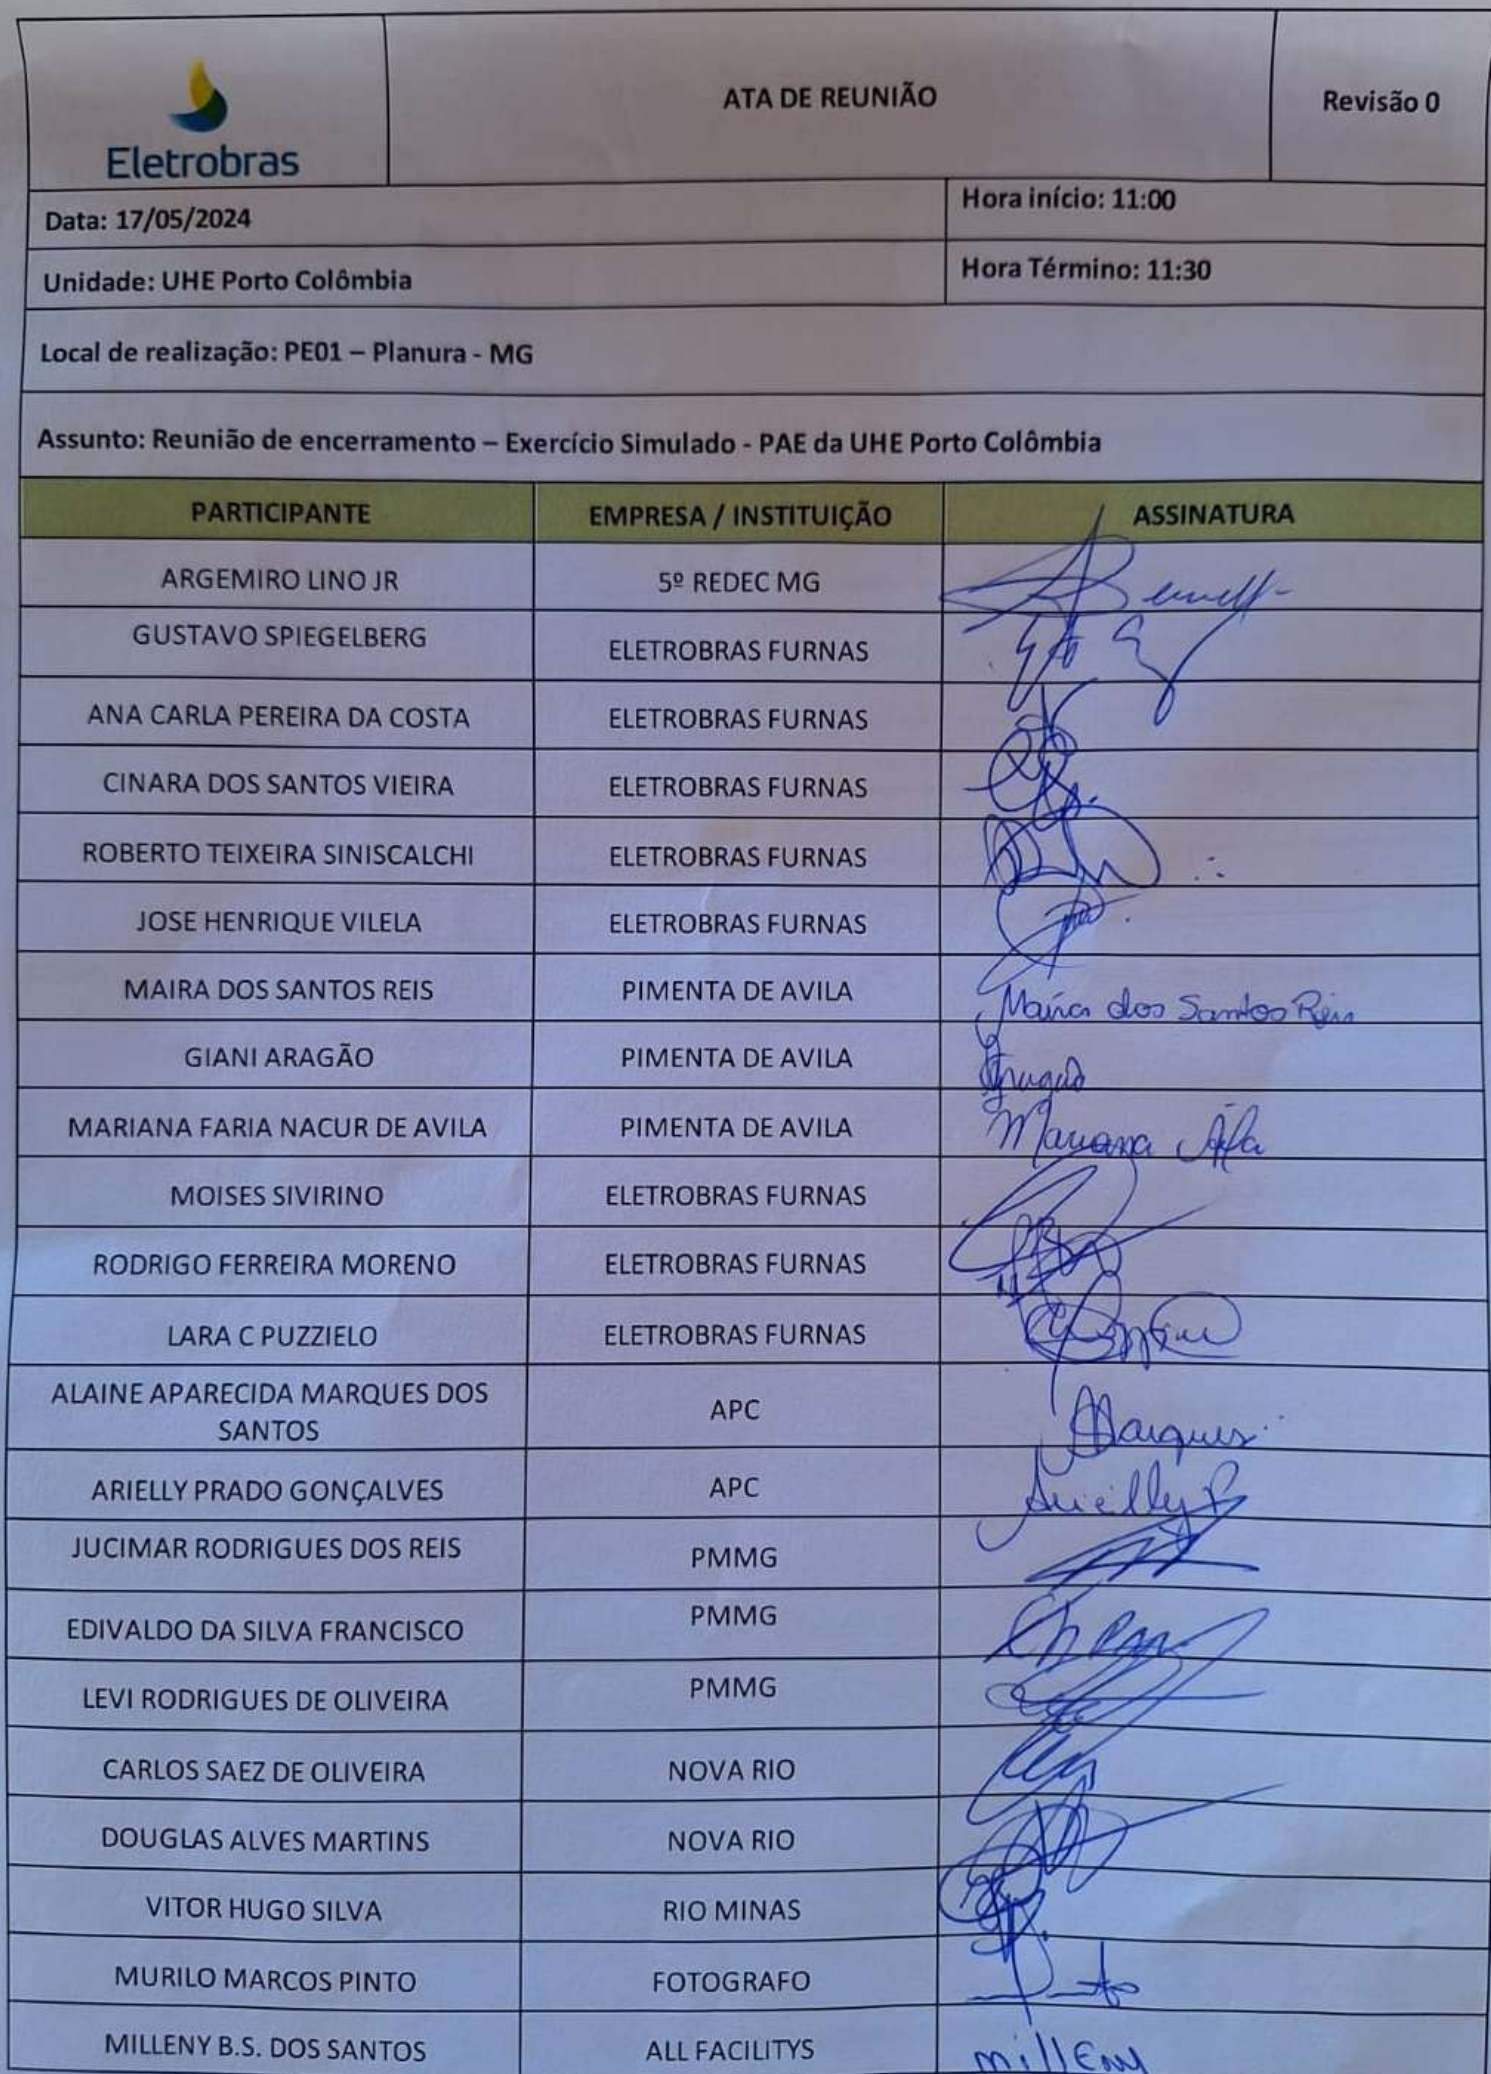 Eletrobras
ATA DE REUNIÃO
Revisão 0
Data: 17/05/2024
Hora início: 11:00
Unidade: UHE Porto Colômbia
Hora Término: 11:30
Local de realização: PE01 – Planura - MG
Assunto: Reunião de encerramento – Exercício Simulado - PAE da UHE Porto Colômbia
PARTICIPANTE EMPRESA / INSTITUIÇÃO ASSINATURA
ARGEMIRO LINO JR 5º REDEC MG
GUSTAVO SPIEGELBERG ELETROBRAS FURNAS
ANA CARLA PEREIRA DA COSTA ELETROBRAS FURNAS
CINARA DOS SANTOS VIEIRA ELETROBRAS FURNAS
ROBERTO TEIXEIRA SINISCALCHI ELETROBRAS FURNAS
JOSE HENRIQUE VILELA ELETROBRAS FURNAS
MAIRA DOS SANTOS REIS PIMENTA DE AVILA Maíra dos Santos Reis
GIANI ARAGÃO PIMENTA DE AVILA
MARIANA FARIA NACUR DE AVILA PIMENTA DE AVILA Mariana
MOISES SIVIRINO ELETROBRAS FURNAS
RODRIGO FERREIRA MORENO ELETROBRAS FURNAS
LARA C PUZZIELO ELETROBRAS FURNAS
ALAINE APARECIDA MARQUES DOS
SANTOS APC AMarques
ARIELLY PRADO GONÇALVES APC Arielly P
JUCIMAR RODRIGUES DOS REIS PMMG
EDIVALDO DA SILVA FRANCISCO PMMG
LEVI RODRIGUES DE OLIVEIRA PMMG
CARLOS SAEZ DE OLIVEIRA NOVA RIO
DOUGLAS ALVES MARTINS NOVA RIO
VITOR HUGO SILVA RIO MINAS
MURILO MARCOS PINTO FOTOGRAFO
MILLENY B.S. DOS SANTOS ALL FACILITYS millEny